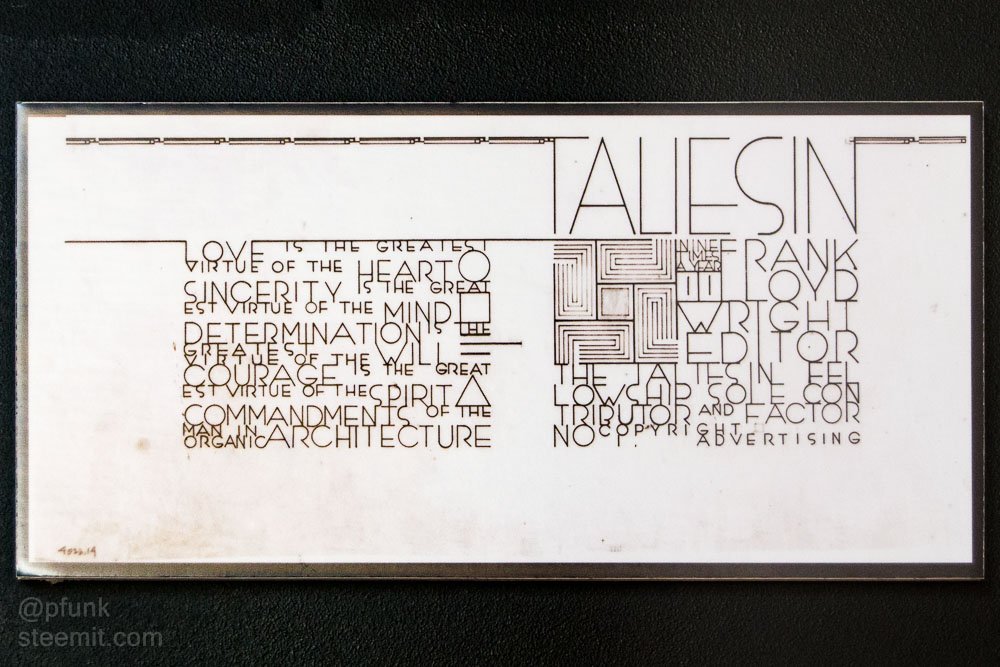 TALIESIN
LOVE IS THE GREATEST
VIRTUE OF THE HEART
SINCERITY IS THE GREAT
EST VIRTUE OF THE MIND
DETERMINATION IS THE
GREATEST
VIRTUE OF THE WILL
COURAGE IS THE GREAT
EST VIRTUE OF THE SPIRIT
COMMANDMENTS OF THE
MAN IN
ORGANIC ARCHITECTURE
NINE
TIMES
A YEAR
FRANK
LLOYD
WRIGHT
EDITOR
THE TALIESIN FEL
LOWSHIP SOLE CON
TRIBUTOR AND FACTOR
NO COPYRIGHT
ADVERTISING
@pfunk
steemit.com